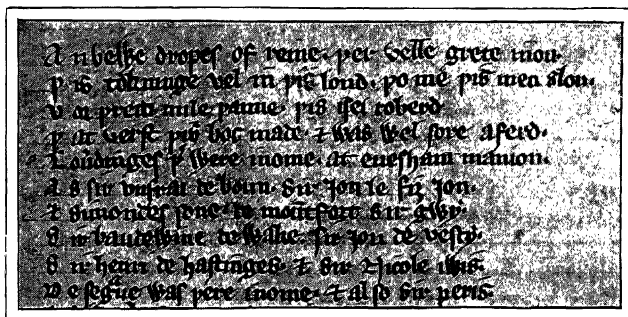 A n velke dropes of reine· þer velle grete inou·
þ is tokninge vel in þis lond· þo me þis men slou·
v or þretti mile þanne· þis isei roberd
þ at verst þis boc made· ⁊ was wel sore aferd·
L ouerdinges þer were inome· at euesham manion·
A s sir vmfrai de boun· sir Jon le fiz Jon·
⁊ simondes sone de mountfort sir gwy·
S ir baudewine de wake· sir Jon de vescy·
S ir henri de hastinges· ⁊ sir Nicole iwis·
D e segᵃue was þere inome· ⁊ also sir peris·